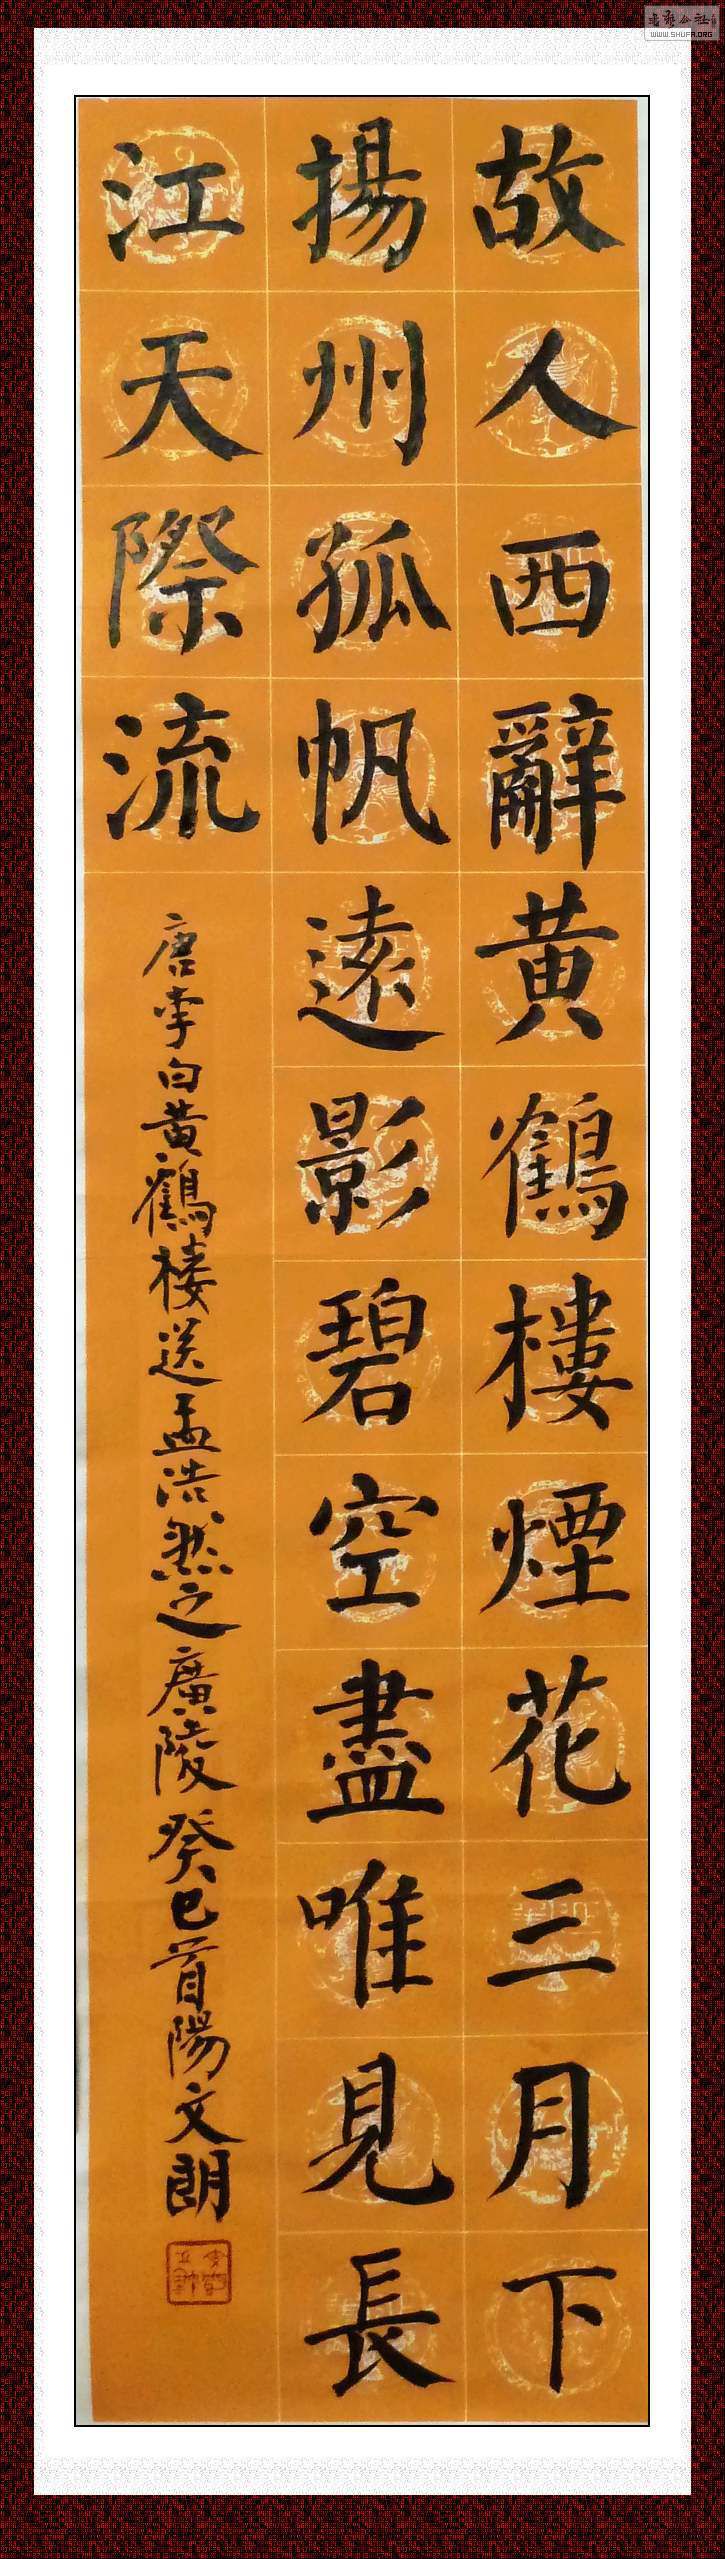 故人西辭黃鶴樓煙花三月下
揚州孤帆遠影碧空盡唯見長
江天際流
唐李白黃鶴楼送孟浩然之廣陵 癸巳首陽文朗
WWW.SHUFA.ORG